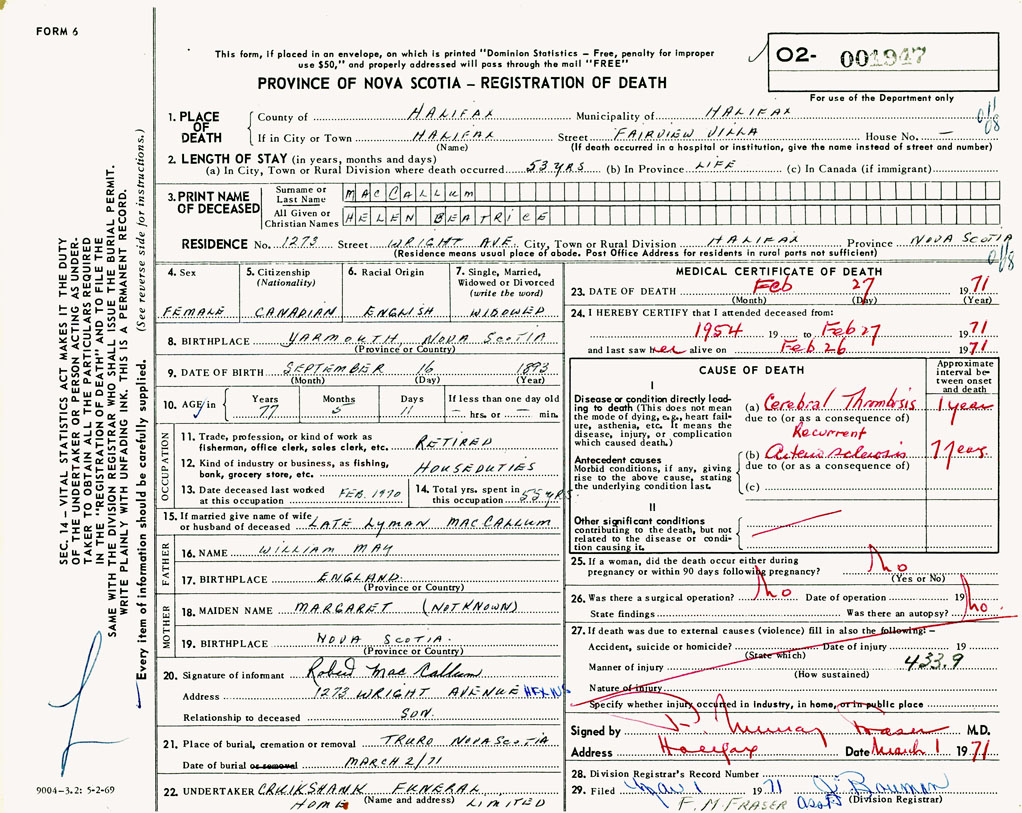 FORM 6
This form, if placed in an envelope, on which is printed "Dominion Statistics – Free, penalty for improper
use $50," and properly addressed will pass through the mail "FREE"
PROVINCE OF NOVA SCOTIA – REGISTRATION OF DEATH
02- 001947
For use of the Department only
SEC. 14 – VITAL STATISTICS ACT MAKES IT THE DUTY
OF THE UNDERTAKER OR PERSON ACTING AS UNDER-
TAKER TO OBTAIN ALL THE PARTICULARS REQUIRED
IN THE "REGISTRATION OF DEATH" AND TO FILE THE
SAME WITH THE DIVISION REGISTRAR WHO SHALL ISSUE THE BURIAL PERMIT.
WRITE PLAINLY WITH UNFADING INK. THIS IS A PERMANENT RECORD.
Every item of information should be carefully supplied. (See reverse side for instructions.)
1. PLACE OF DEATH
County of HALIFAX Municipality of HALIFAX
If in City or Town HALIFAX Street FAIRVIEW VILLA House No. —
(Name) (If death occurred in a hospital or institution, give the name instead of street and number)
2. LENGTH OF STAY (in years, months and days)
(a) In City, Town or Rural Division where death occurred 53 YRS (b) In Province LIFE (c) In Canada (if immigrant)
3. PRINT NAME OF DECEASED
Surname or Last Name MACCALLUM
All Given or Christian Names HELEN BEATRICE
RESIDENCE No. 1273 Street WRIGHT AVE. City, Town or Rural Division HALIFAX Province NOVA SCOTIA
(Residence means usual place of abode. Post Office Address for residents in rural parts not sufficient)
4. Sex
FEMALE
5. Citizenship
(Nationality)
CANADIAN
6. Racial Origin
ENGLISH
7. Single, Married,
Widowed or Divorced
(write the word)
WIDOWED
8. BIRTHPLACE YARMOUTH, NOVA SCOTIA
(Province or Country)
9. DATE OF BIRTH SEPTEMBER 16 1893
(Month) (Day) (Year)
10. AGE in Years Months Days If less than one day old
77 5 11 — hrs. or — min.
OCCUPATION
11. Trade, profession, or kind of work as
fisherman, office clerk, sales clerk, etc. RETIRED
12. Kind of industry or business, as fishing,
bank, grocery store, etc. HOUSEDUTIES
13. Date deceased last worked
at this occupation FEB. 1970
14. Total yrs. spent in
this occupation 55 YRS
15. If married give name of wife
or husband of deceased LATE LYMAN MACCALLUM
FATHER
16. NAME WILLIAM MAY
17. BIRTHPLACE ENGLAND
(Province or Country)
MOTHER
18. MAIDEN NAME MARGARET (NOT KNOWN)
19. BIRTHPLACE NOVA SCOTIA.
(Province or Country)
20. Signature of informant Robert MacCallum
Address 1273 WRIGHT AVENUE HFX NS
Relationship to deceased SON.
21. Place of burial, cremation or removal TRURO NOVA SCOTIA
Date of burial or removal MARCH 2/71
22. UNDERTAKER CRUIKSHANK FUNERAL
(Name and address)
HOME LIMITED
9004-3.2: 5-2-69
MEDICAL CERTIFICATE OF DEATH
23. DATE OF DEATH Feb 27 1971
(Month) (Day) (Year)
24. I HEREBY CERTIFY that I attended deceased from:
1954 19 to Feb 27 1971
and last saw her alive on Feb 26 1971
CAUSE OF DEATH
Approximate
interval be-
tween onset
and death
I
Disease or condition directly lead-
ing to death (This does not mean
the mode of dying, e.g., heart fail-
ure, asthenia, etc. It means the
disease, injury, or complication
which caused death.)
(a) Cerebral Thrombosis 1 year
due to (or as a consequence of)
Recurrent
Antecedent causes
Morbid conditions, if any, giving
rise to the above cause, stating
the underlying condition last.
(b) Arteriosclerosis
due to (or as a consequence of)
(c)
II
Other significant conditions
contributing to the death, but not
related to the disease or condi-
tion causing it.
25. If a woman, did the death occur either during
pregnancy or within 90 days following pregnancy? no
(Yes or No)
26. Was there a surgical operation? no Date of operation 19
State findings Was there an autopsy? no.
27. If death was due to external causes (violence) fill in also the following:–
Accident, suicide or homicide? Date of injury 19
(State which)
Manner of injury 433.9
(How sustained)
Nature of injury
Specify whether injury occurred in industry, in home, or in public place
Signed by Murray Fraser M.D.
Address Halifax Date March 1 1971
28. Division Registrar's Record Number
29. Filed Mar 1 1971 Bowman
F. M. FRASER Asst (Division Registrar)